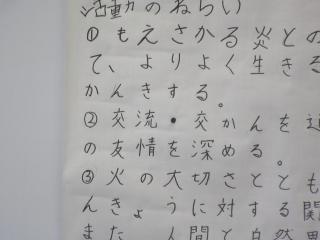 活動のねらい
①もえさかる炎との
て、よりよく生きる
かんきする。
②交流・交かんを通
の友情を深める。
③火の大切さととも
んきょうに対する関
また、人間と自然界